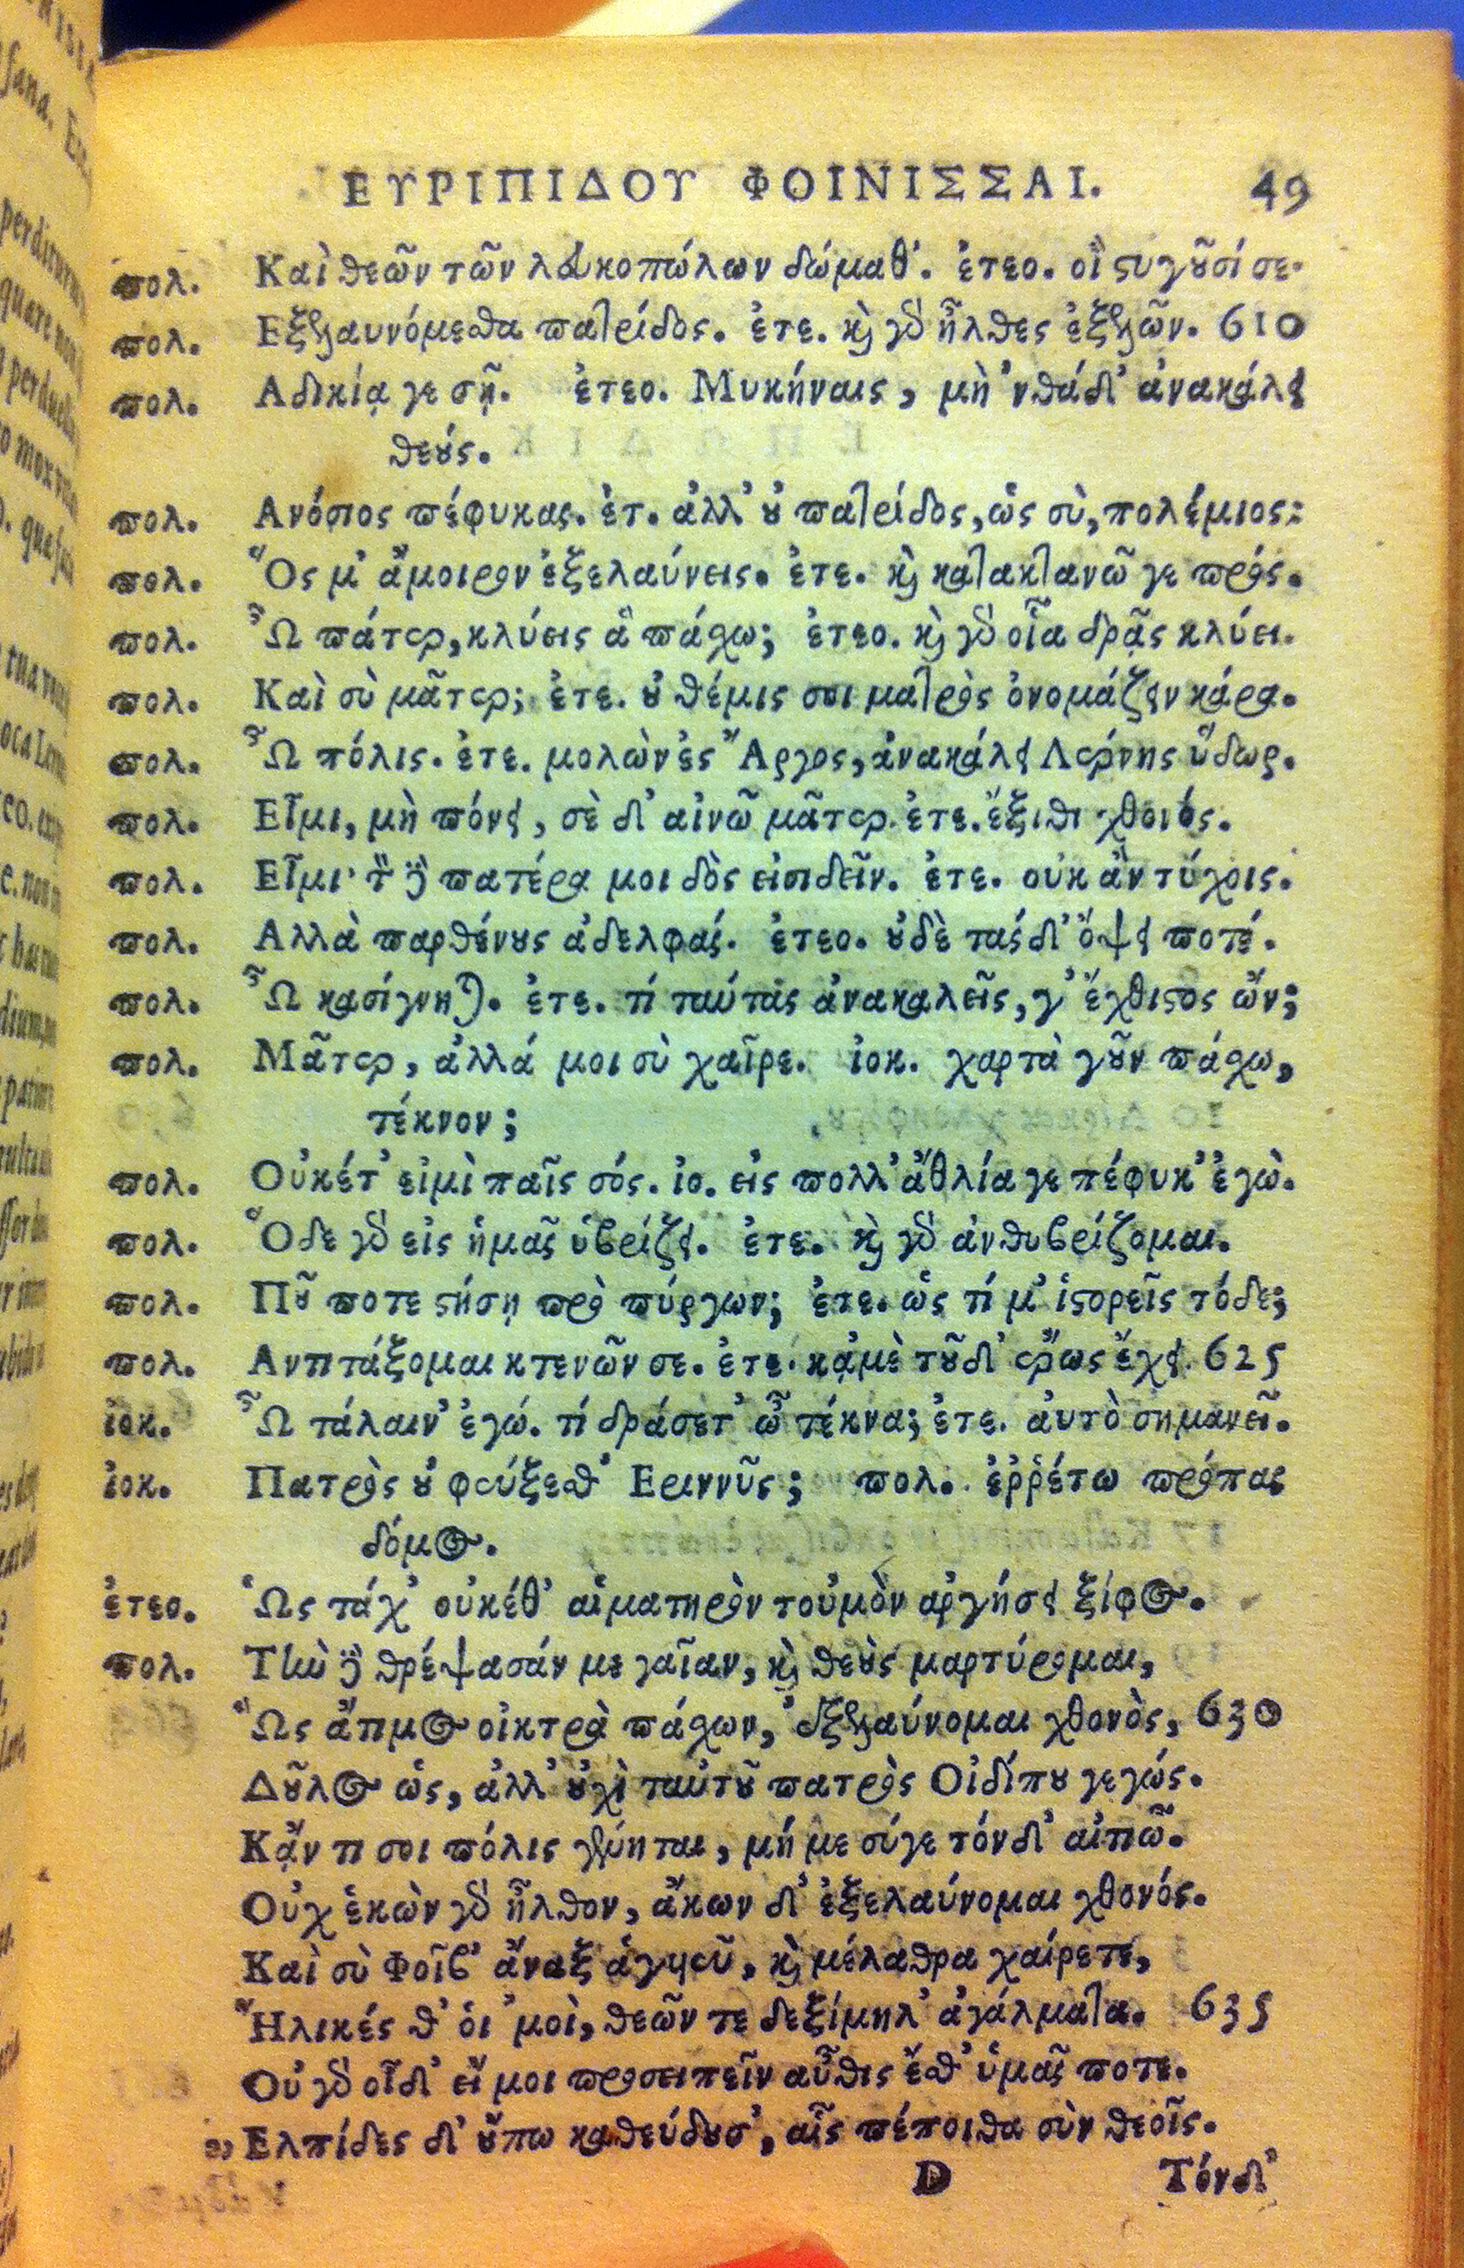 ΕΥΡΙΠΙΔΟΥ ΦΟΙΝΙΣΣΑΙ. 49
πολ. Καὶ θεῶν τῶν λευκοπώλων δώμαθ᾽. ἐτεο. οἳ στυγοῦσί σε.
πολ. Εξελαυνόμεσθα πατρίδος. ἐτε. καὶ γὰρ ἦλθες ἐξελῶν. 610
πολ. Αδικίᾳ γε σῇ. ἐτεο. Μυκήναις, μὴ ᾽νθάδ᾽ ἀνακάλει
θεούς.
πολ. Ανόσιος πέφυκας. ἐτ. ἀλλ᾽ οὐ πατρίδος, ὡς σὺ, πολέμιος:
πολ. Ὅς μ᾽ ἄμοιρον ἐξελαύνεις. ἐτε. καὶ κατακτανῶ γε πρός.
πολ. Ὦ πάτερ, κλύεις ἃ πάσχω; ἐτεο. καὶ γὰρ οἷα δρᾷς κλύει.
πολ. Καὶ σὺ μᾶτερ; ἐτε. οὐ θέμις σοι ματρὸς ὀνομάζειν κάρα.
πολ. Ὦ πόλις. ἐτε. μολὼν ἐς Ἄργος, ἀνακάλει Λέρνης ὕδωρ.
πολ. Εἶμι, μὴ πόνει, σὲ δ᾽ αἰνῶ μᾶτερ. ἐτε. ἔξιθι χθονός.
πολ. Εἶμι· τὸν δὲ πατέρα μοι δὸς εἰσιδεῖν. ἐτε. οὐκ ἂν τύχοις.
πολ. Αλλὰ παρθένους ἀδελφάς. ἐτεο. οὐδὲ τάς δ᾽ ὄψει ποτέ.
πολ. Ὦ κασίγνηται. ἐτε. τί ταύτας ἀνακαλεῖς, γ᾽ ἔχθιστος ὤν;
πολ. Μᾶτερ, ἀλλά μοι σὺ χαῖρε. ἰοκ. χαρτὰ γοῦν πάσχω,
τέκνον;
πολ. Οὐκέτ᾽ εἰμὶ παῖς σός. ἰο. εἰς πολλ᾽ ἀθλία γε πέφυκ᾽ ἐγὼ.
πολ. Ὅδε γὰρ εἰς ἡμᾶς ὑβρίζει. ἐτε. καὶ γὰρ ἀνθυβρίζομαι.
πολ. Ποῦ ποτε στήσῃ πρὸ πύργων; ἐτε. ὡς τί μ᾽ ἱστορεῖς τόδε;
πολ. Αντιτάξομαι κτενῶν σε. ἐτε. κᾀμὲ τοῦδ᾽ ἔρως ἔχει. 625
ἰοκ. Ὦ τάλαιν᾽ ἐγώ. τί δράσετ᾽ ὦ τέκνα; ἐτε. αὐτὸ σημανεῖ.
ἰοκ. Πατρὸς οὐ φεύξεσθ᾽ Εριννῦς; πολ. ἐῤῥέτω πρόπας
δόμος.
ἐτεο. Ὡς τάχ᾽ οὐκέθ᾽ αἱματηρὸν τοὐμὸν ἀργήσει ξίφος.
πολ. Τὴν δὲ θρέψασάν με γαῖαν, καὶ θεοὺς μαρτύρομαι,
Ὡς ἄτιμος οἰκτρὰ πάσχων, ἐξελαύνομαι χθονὸς, 630
Δοῦλος ὡς, ἀλλ᾽ οὐχὶ ταὐτοῦ πατρὸς Οἰδίπου γεγώς.
Κἄν τι σοι πόλις γένηται, μή με σύγε τόνδ᾽ αἰτιῶ.
Οὐχ ἑκὼν γὰρ ἦλθον, ἄκων δ᾽ ἐξελαύνομαι χθονός.
Καὶ σὺ Φοῖβ᾽ ἄναξ ἀγυιεῦ, καὶ μέλαθρα χαίρετε,
Ἥλικές θ᾽ οἱ ᾽μοὶ, θεῶν τε δεξίμηλ᾽ ἀγάλματα. 635
Οὐ γὰρ οἶδ᾽ εἴ μοι προσειπεῖν αὖθις ἔσθ᾽ ὑμᾶς ποτε.
Ελπίδες δ᾽ οὔπω καθεύδουσ᾽, αἷς πέποιθα σὺν θεοῖς.
D Τόνδ᾽